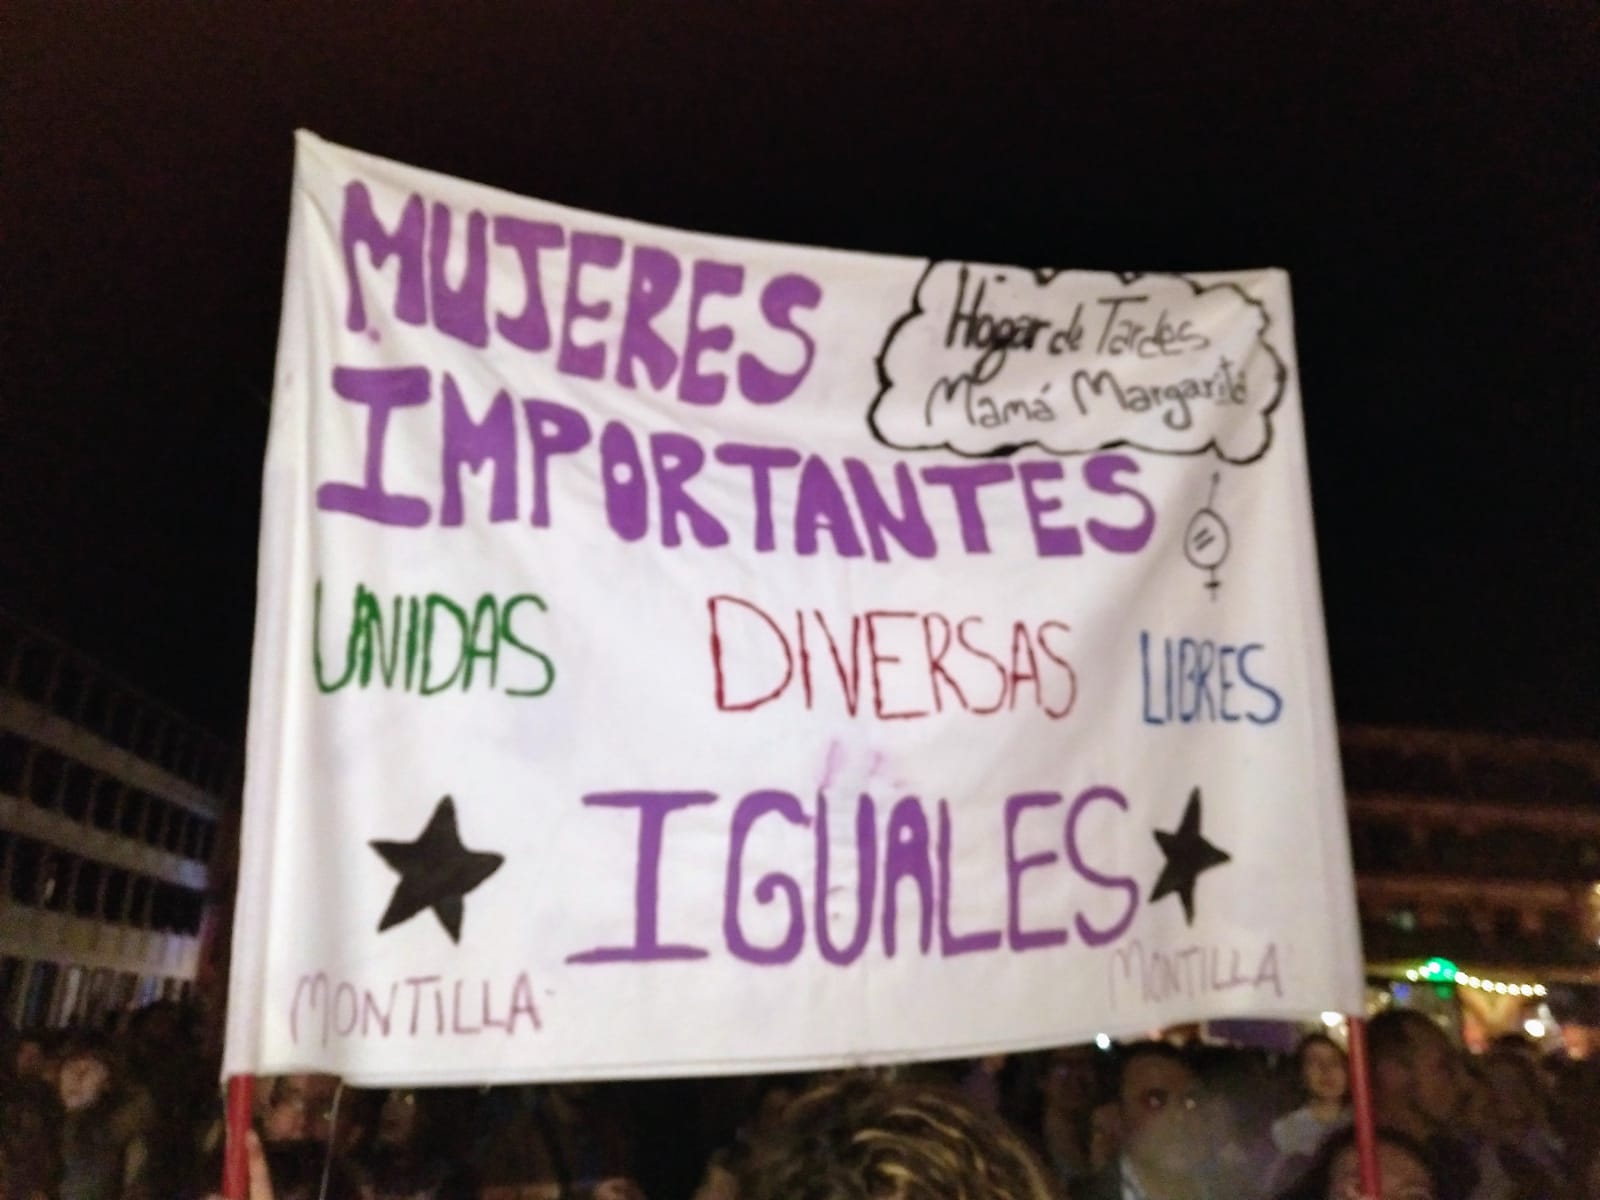 MUJERES
Hogar de Tardes
Mamá Margarita
IMPORTANTES
UNIDAS DIVERSAS LIBRES
IGUALES
MONTILLA MONTILLA